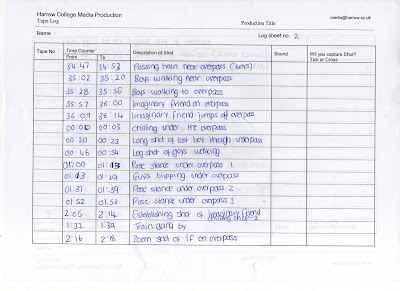 Harrow College Media Production
media@harrow.ac.uk
Tape Log
Production Title
Name
Log sheet no. 2
Tape No Time Counter Description of Shot Sound Hv you capture Shot?
From To Tick or Cross
34:47 34:53 Passing train near overpass (boys)
35:02 35:20 Boys walking near overpass
35:28 35:56 Boys walking to overpass
35:57 36:00 Imaginary friend on overpass
36:09 36:14 Imaginary friend jumps off overpass
00:00 00:03 Chilling under the overpass
00:20 00:23 Long shot of last boy through underpass
00:46 00:54 Leg shot of guys walking
01:00 01:13 Pose stance under overpass 1
01:13 01:29 Guys bopping under overpass
01:37 01:39 Pose stance under overpass 2
01:52 01:53 Pose stance under overpass 3
2:05 2:14 Establishing shot of imaginary friend
1:32 1:39 Train going by
2:16 2:18 Zoom shot of IF on overpass